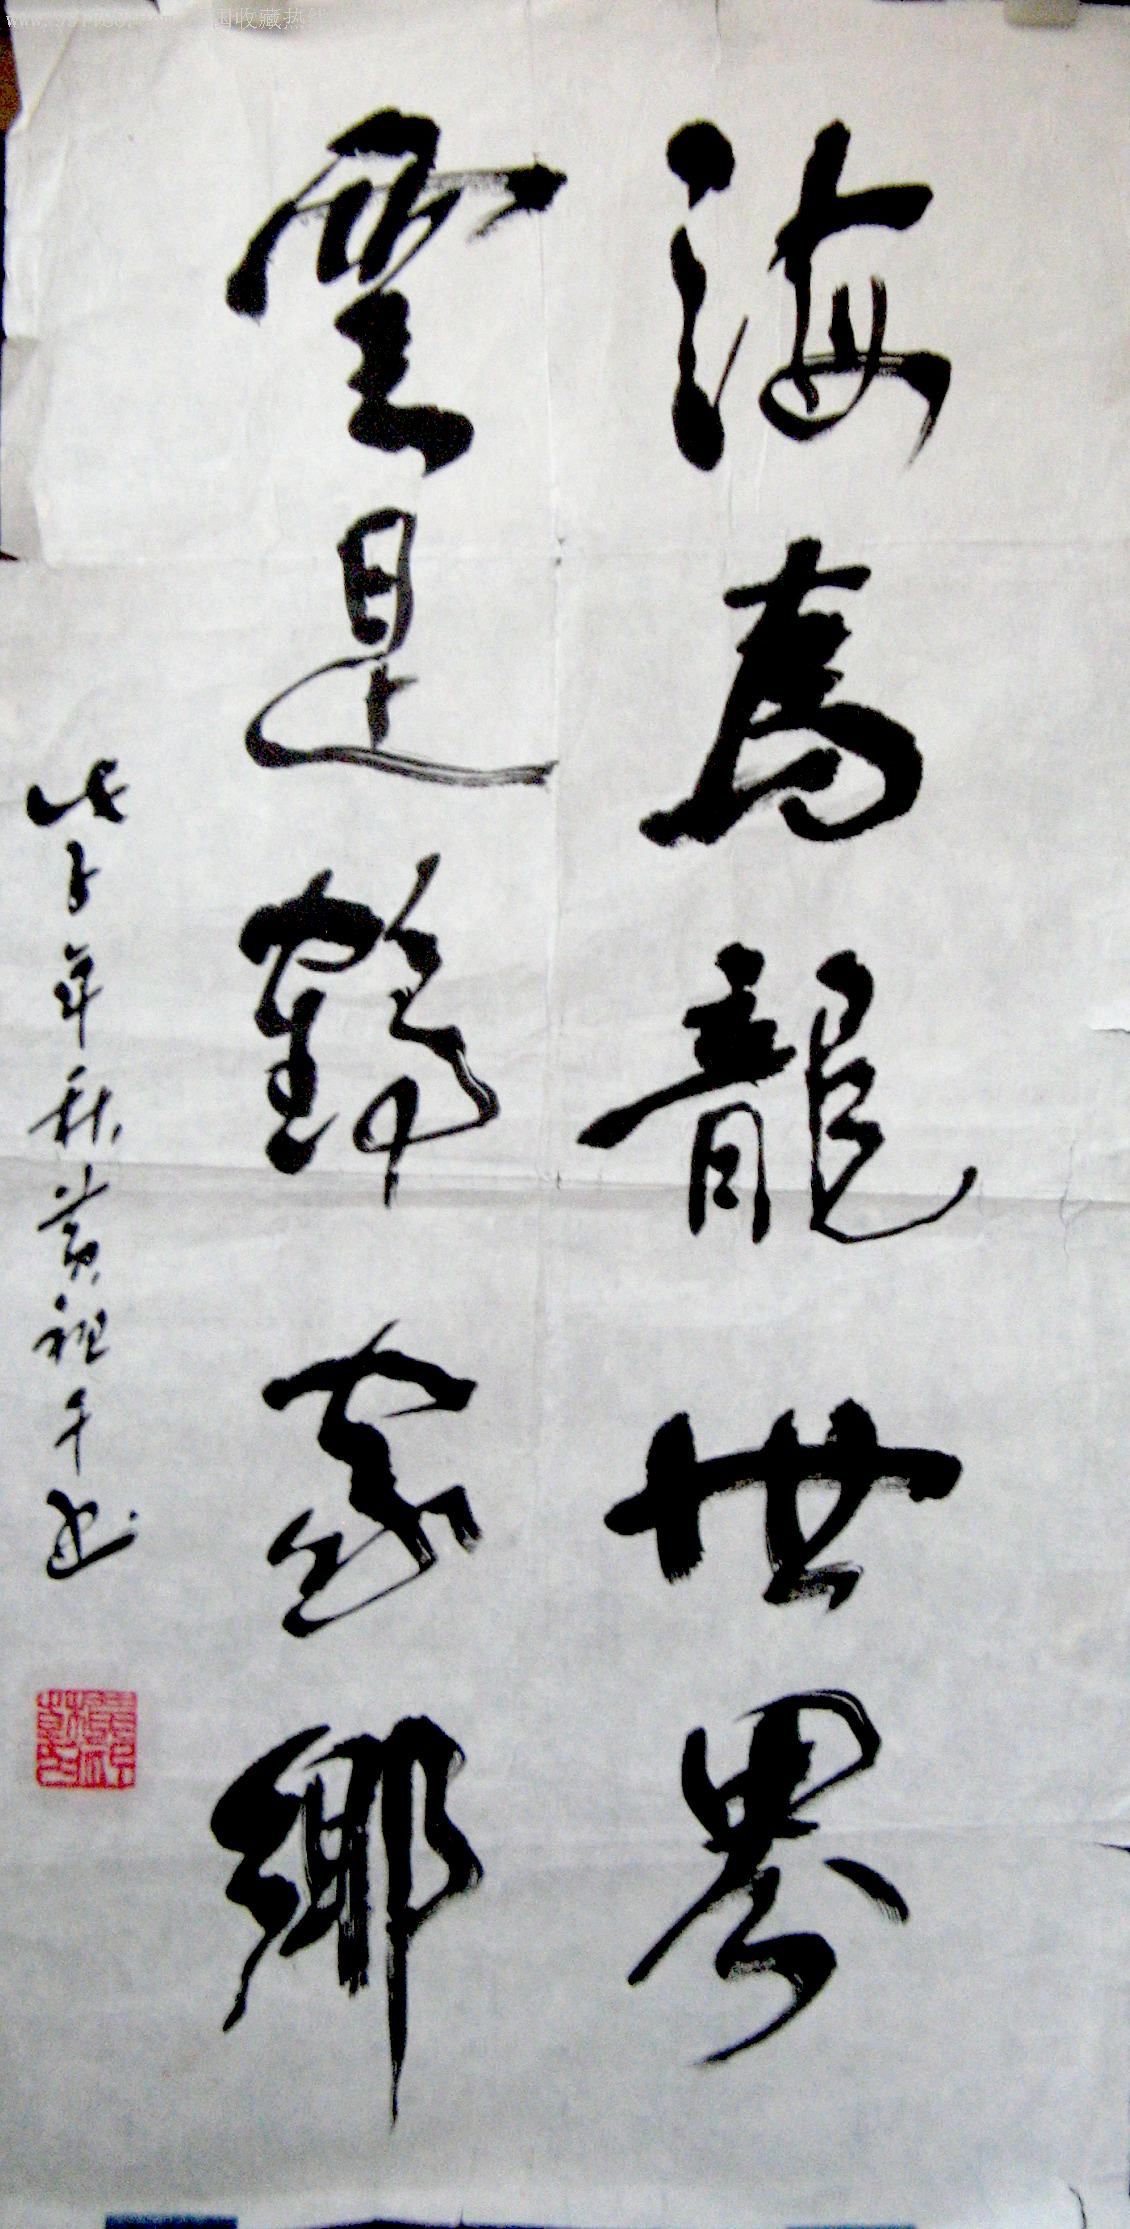 海為龍世界
雲是鶴家鄉
戊子年秋黃祖千书
国收藏热线